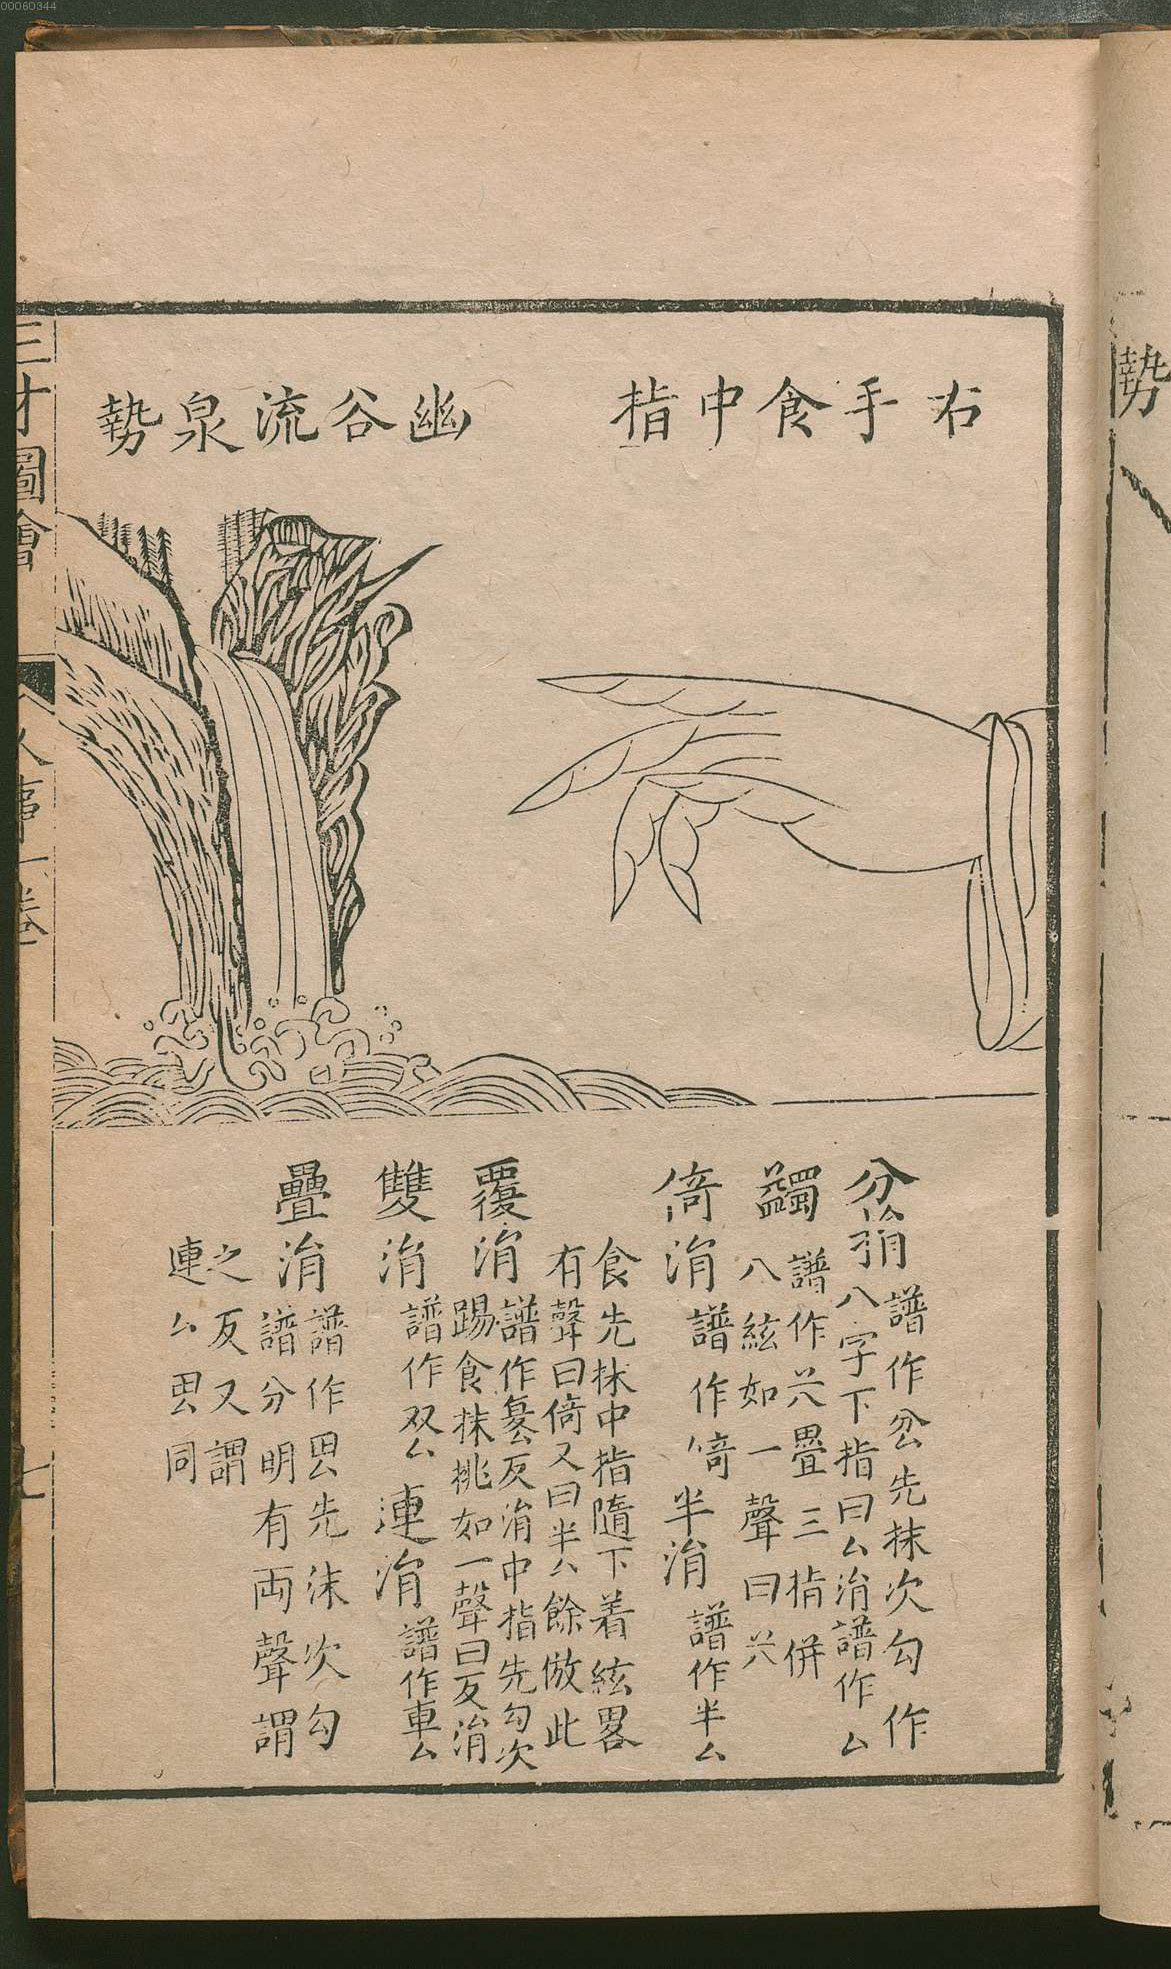 00060344
右手食中指
幽谷流泉勢
譜作
先抹次勾作
八字下指曰厶涓譜作厶
蠲
譜作𭕄疊三指併
八絃如一聲曰
倚涓
譜作
半涓
譜作半厶
食先抹中指隨下着絃畧
有聲曰倚又曰半厶餘倣此
覆涓
譜作
反涓中指先勾次
踢食抹挑如一聲曰反涓
雙涓
譜作双厶
連涓
譜作車厶
疊涓
譜作
先沫次勾
譜分明有両聲謂
之反又謂
連厶
同
三才圖會
人事一卷
七
勢